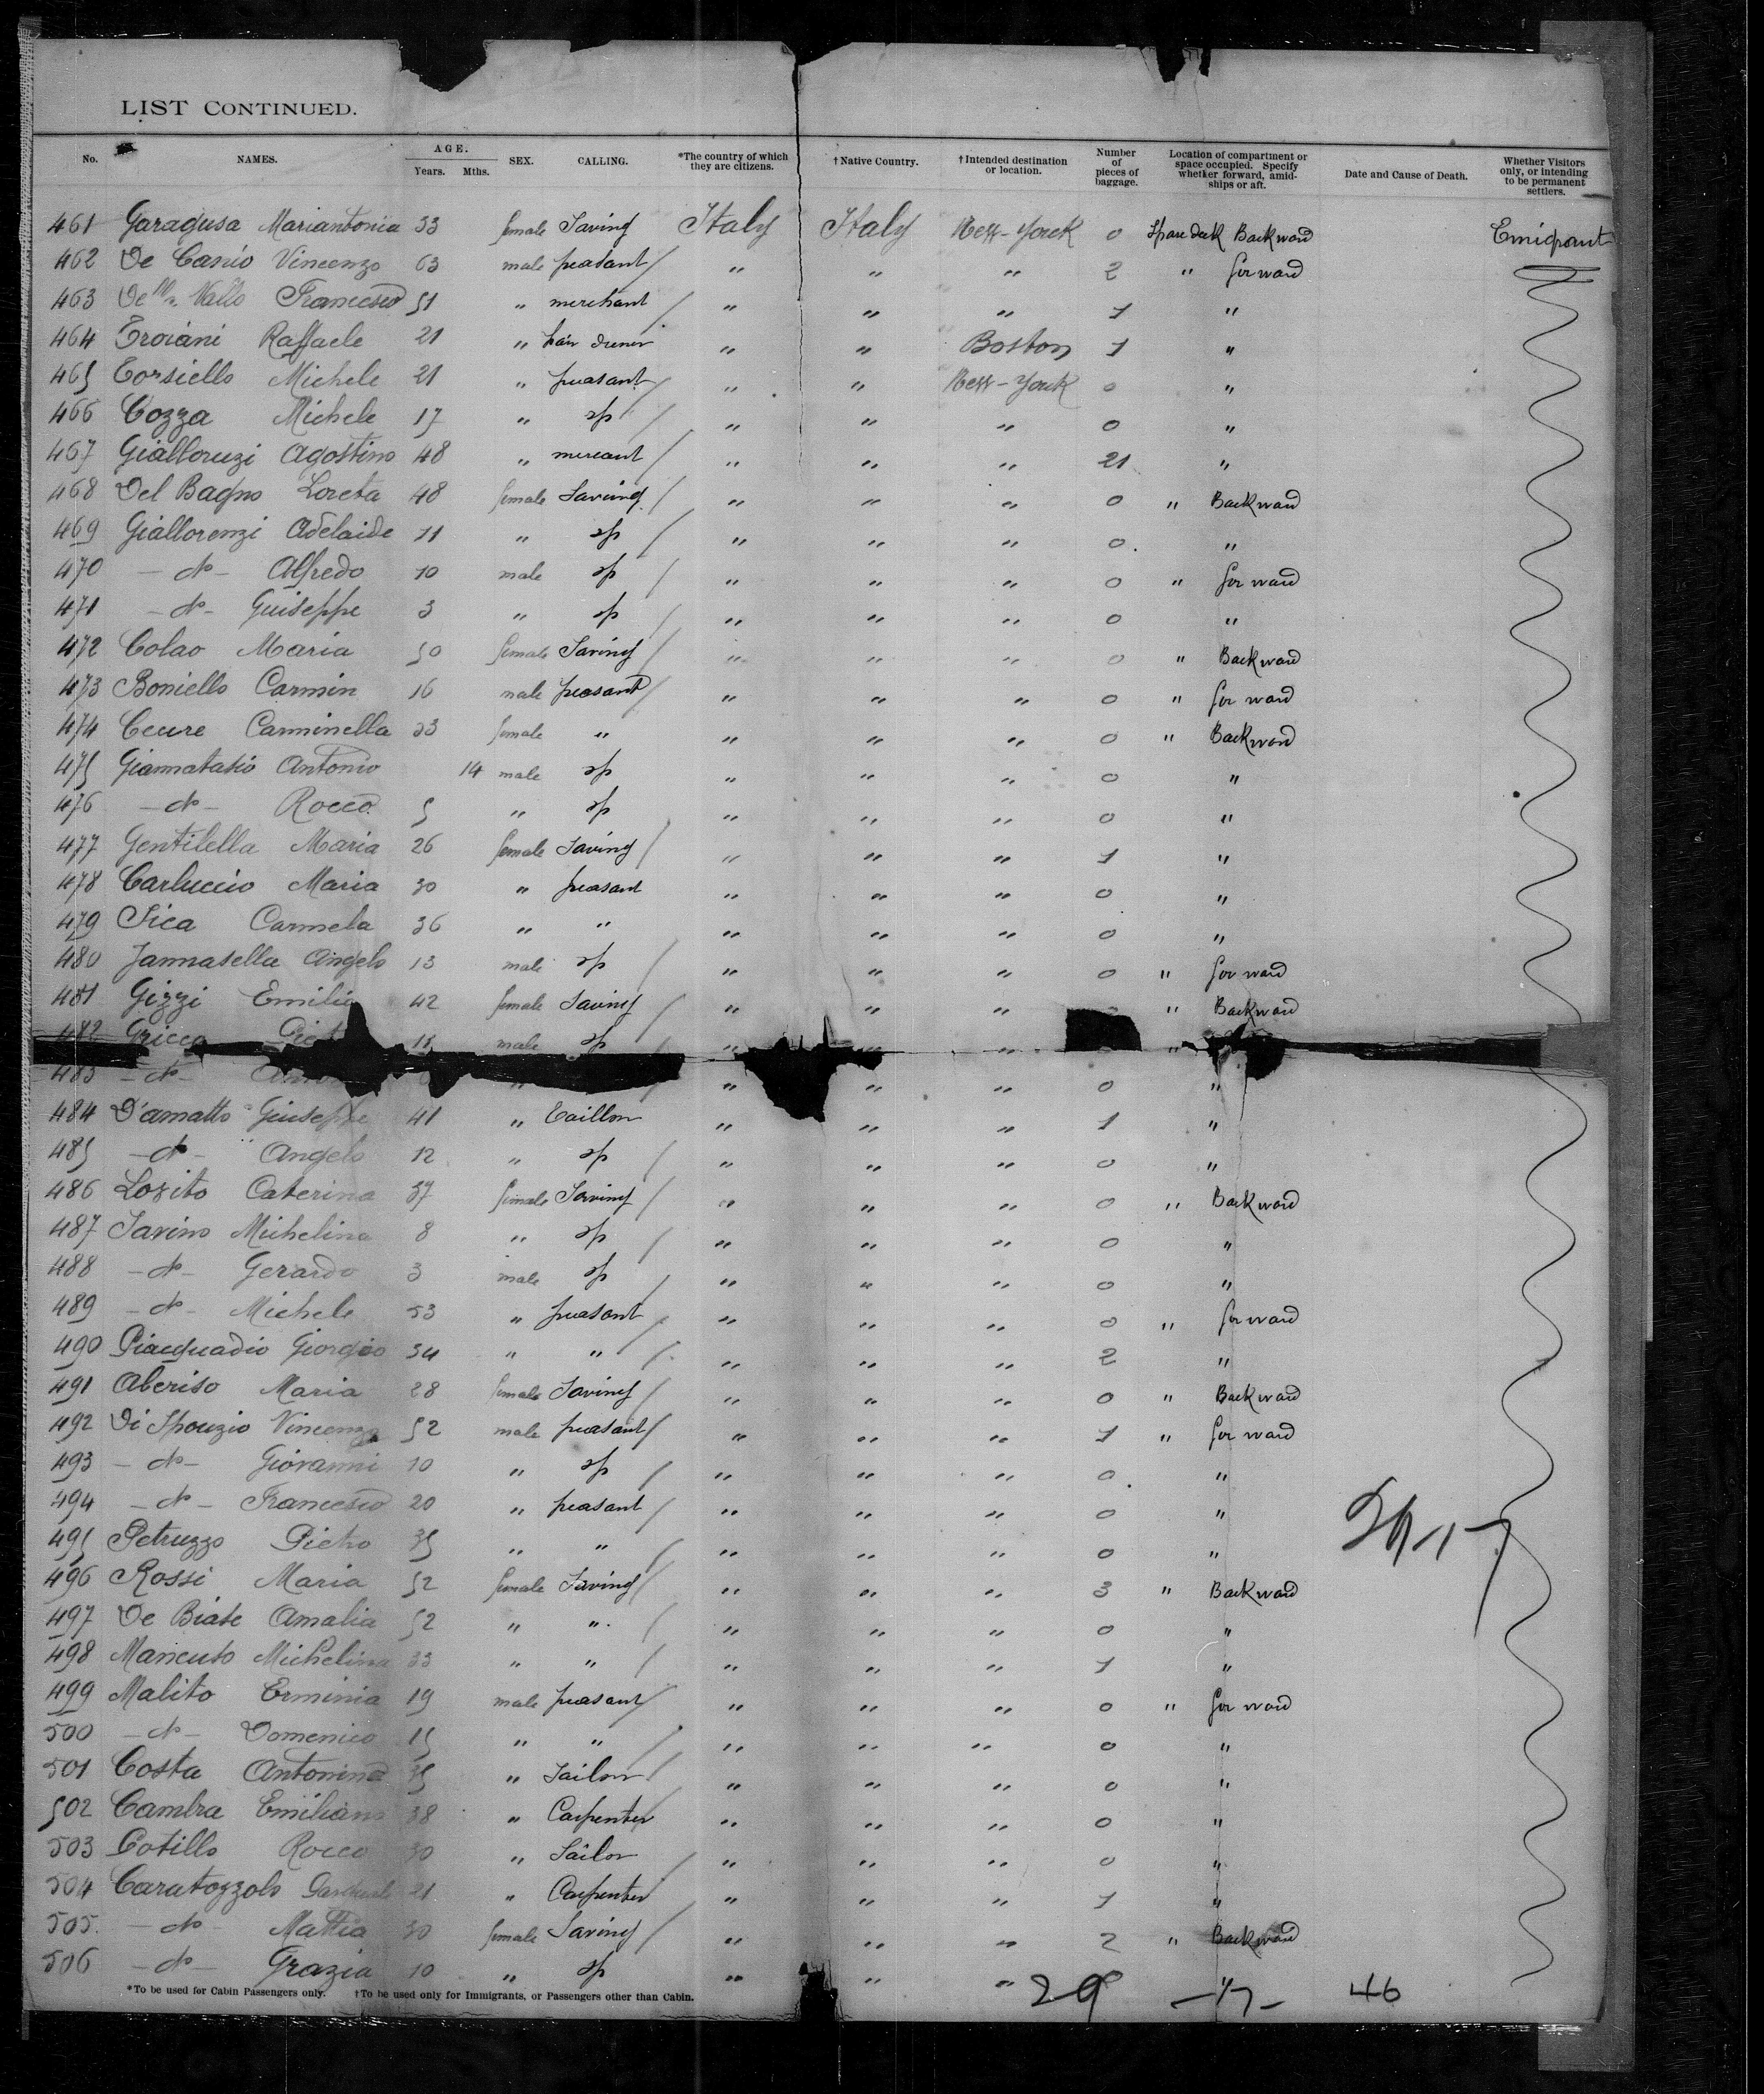 LIST CONTINUED.
No. NAMES. AGE. Years. Mths. SEX. CALLING. *The country of which they are citizens. †Native Country. †Intended destination or location. Number of pieces of baggage. Location of compartment or space occupied. Specify whether forward, amidships or aft. Date and Cause of Death. Whether Visitors only, or intending to be permanent settlers.
461 Garagusa Mariantonia 33 female Saving Italy Italy New-Yorck 0 Spare deck Backward Emigrant
462 De Canio Vincenzo 63 male peasant / " " " 2 " forward
463 Della Vallo Francesco 51 " merchant / " " " 1 "
464 Troiani Raffaele 21 " hair " " Boston 1 "
465 Torsiello Michele 21 " peasant / " " New-York 0 "
466 Cozza Michele 17 " sp / " " " 0 "
467 Gialloruzi Agostino 48 " mercant / " " " 21 "
468 Del Bagno Loreta 48 female Saving / " " " 0 " Backward
469 Giallorenzi Adelaide 11 " sp / " " " 0 "
470 - do - Alfredo 10 male sp / " " " 0 " forward
471 - do - Guiseppe 3 " sp / " " " 0 "
472 Colao Maria 50 female Saving / " " " 0 " Backward
473 Boniello Carmin 16 male peasant / " " " 0 " forward
474 Cecere Carminella 33 female " " " " 0 " Backward
475 Giannatasio Antonio 14 male sp " " " 0 "
476 - do - Rocco 5 " sp " " " 0 "
477 Gentilella Maria 26 female Saving / " " " 1 "
478 Carluccio Maria 30 " peasant " " " 0 "
479 Sica Carmela 36 " " " " " 0 "
480 Jannasella Angelo 13 male sp / " " " 0 " forward
481 Gizzi Emilia 42 female Saving / " " " " Backward
482 Gricco 15 male sp / " " "
483 - do - " " " 0 "
484 D'amatto Giuseppe 41 " Taillon " " " 1 "
485 - do - Angelo 12 " sp / " " " 0 "
486 Lozito Caterina 37 female Saving / " " " 0 " Backward
487 Savino Michelina 8 " sp / " " " 0 "
488 - do - Gerardo 3 male sp / " " " 0 "
489 - do - Michele 53 " peasant / " " " 0 " forward
490 Piacquadio Giorgio 34 " " / " " " 2 "
491 Aberiso Maria 28 female Saving / " " " 0 " Backward
492 Di Spouzio Vincenzo 52 male peasant / " " " 1 " forward
493 - do - Giovanni 10 " sp / " " " 0 "
494 - do - Francesco 20 " peasant / " " " 0 "
495 Petruzzo Pietro 35 " " / " " " 0 "
496 Rossi Maria 52 female Saving / " " " 3 " Backward
497 De Biase Amalia 52 " " / " " " 0 "
498 Mancuso Michelina 33 " " / " " " 1 "
499 Malito Erminia 19 male peasant / " " " 0 " forward
500 - do - Domenico 15 " " / " " " 0 "
501 Costa Antonino 35 " Sailor / " " " 0 "
502 Cambra Emiliano 38 " Carpenter " " " 0 "
503 Cotillo Rocco 30 " Sailor " " " 0 "
504 Caratozzolo Pasquale 21 " Carpenter / " " " 1 "
505 - do - Mattia 30 female Saving / " " " 2 " Backward
506 - do - Grazia 10 " sp " " " "
*To be used for Cabin Passengers only. †To be used only for Immigrants, or Passengers other than Cabin.
29 -17- 46